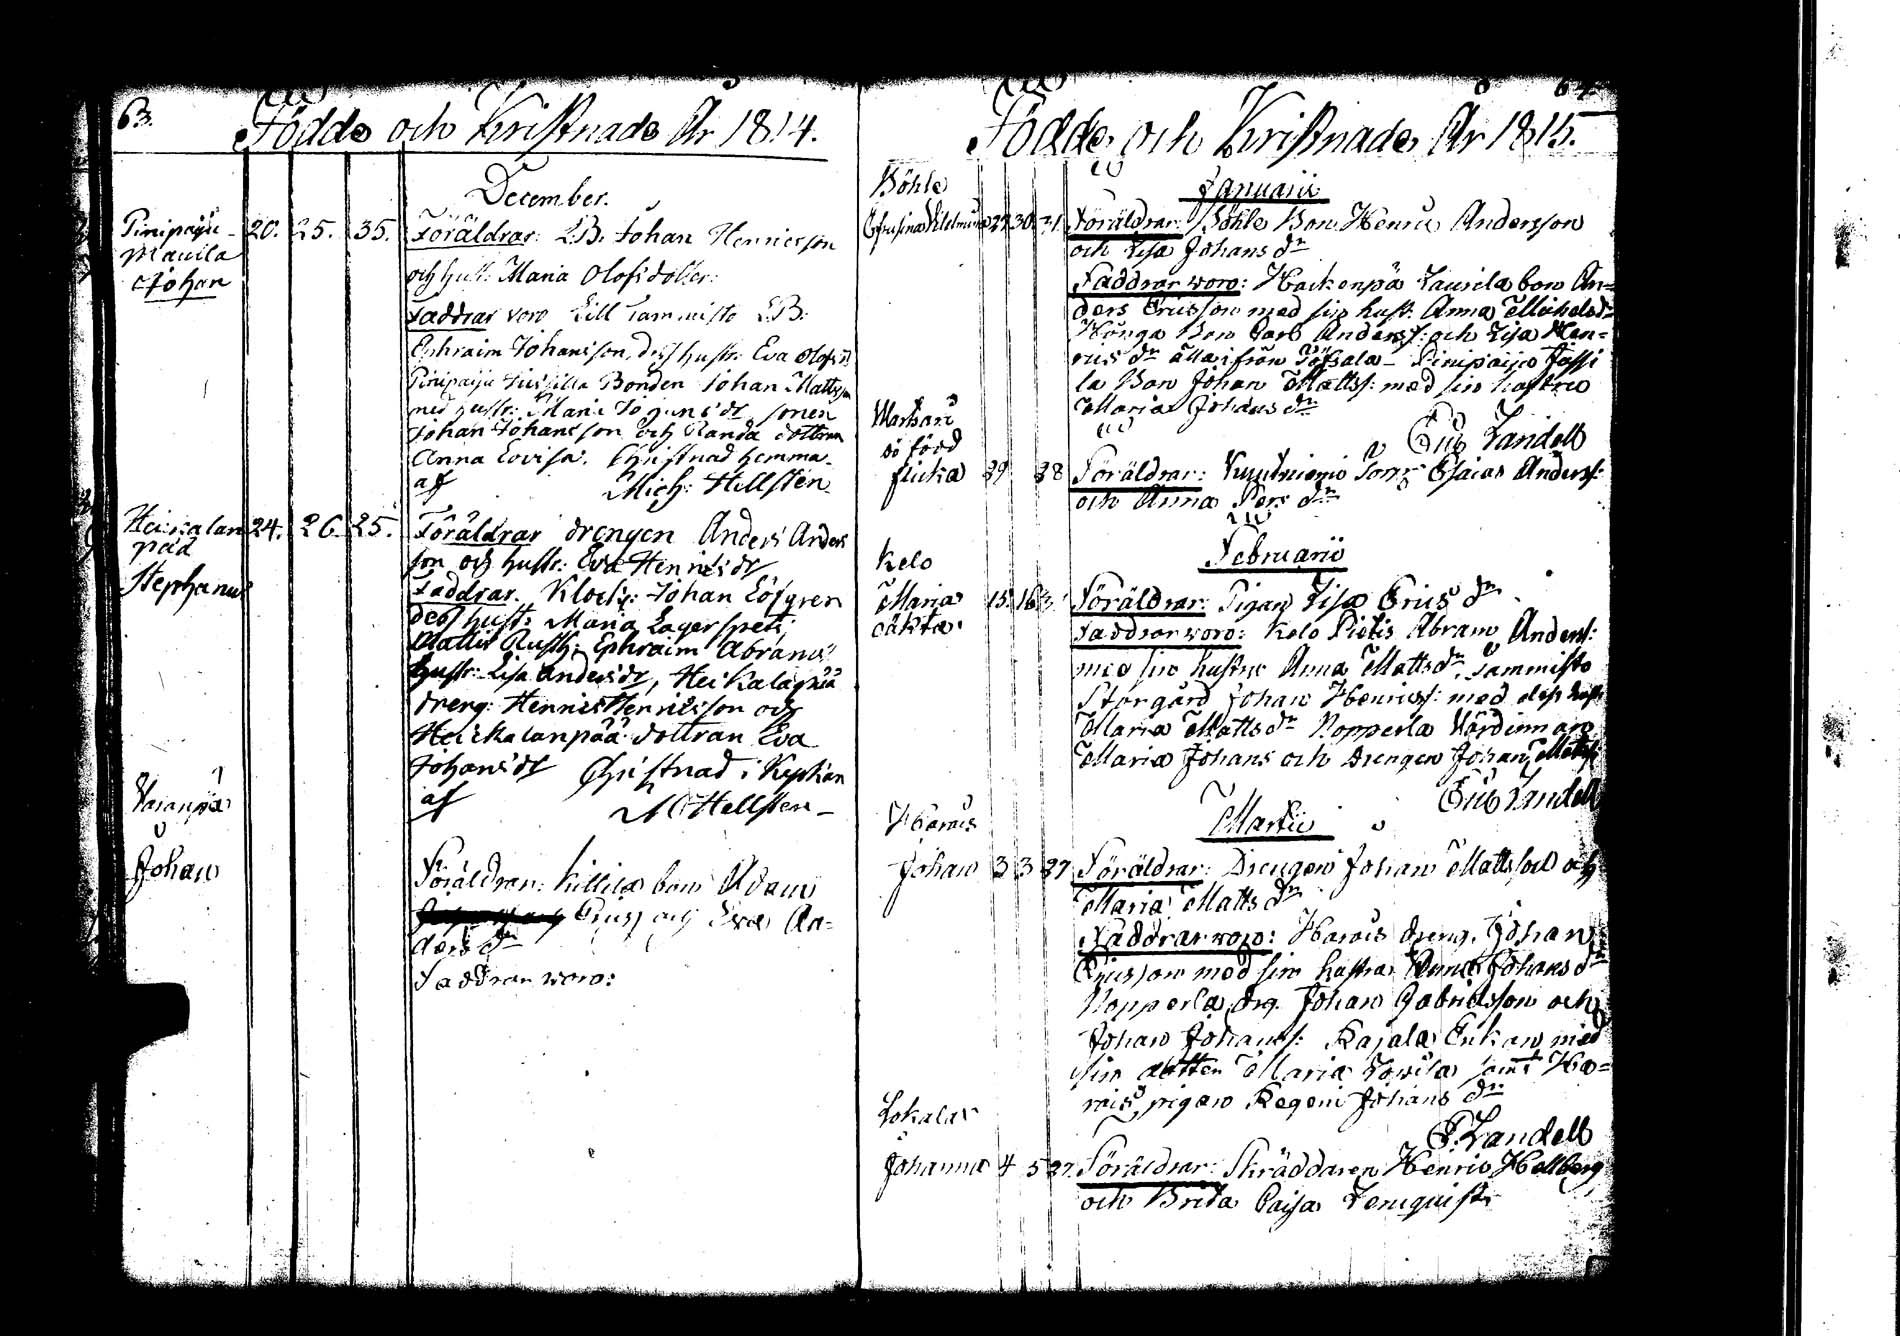 63.
Födde och Kristnade År 1814.
December.
Pinipaju
Maula
Johan
20. 25. 35.
Föräldrar: LB. Johan Henricsson
och hust: Maria Olofsdotter:
Faddrar voro Lill Tammisto LB:
Ephraim Johansson, dess hustr: Eva Olofsd
Pinipaju Jussila Bonden Johan Mattsson
med hustr: Maria Johansdr sonen
Johan Johansson och Randa dottran
Anna Lovisa. Christnad hemma
af Mich: Hellsten
Heickalan
pää
Stephanus
24. 26. 25.
Föräldrar drengen Anders Anders
son och hustr: Eva Henricsdr
Faddrar. Klock: Johan Löfgren
dess hust: Maria Lagerspetz
Mattis Rusth: Ephraim Abrams
hustr: Lisa Andersdr, Heickalapää
dreng: Henric Henricsson och
Heickalanpää dottran Eva
Johansdr Christnad i Kyrkan
af M Hellsten
Varanpä
Johan
Föräldrar: Killila bon Adam
Ericss och Eva An-
ders dr
Faddrar woro:
64.
Födde och Kristnade År 1815.
Januarii
Böhle
Eufrosina Vilelmina 27 30 31.
Föräldrar: Böhle Bon Henric Andersson
och Lisa Johans dr
Faddrar woro: Hackenpä Laurila bon An-
ders Ericsson med sin hust: Anna Michelsdr
Hönga Bon Carl Anderss: och Lisa Hen-
rics dr alla ifrån Töfsala - Pinipaiju Jussi
la Bon Johan Mattss: med sin hustru
Maria Johans dr
Eric Landell
dö född
flicka 29 38
Föräldrar: Torp: Esaias Anderss:
och Anna Pers dr
Februarii
Kelo
Maria
oäkta.
15. 16
Föräldrar: Pigan Lisa Erics dr
Faddrar woro: Kelo Pietis Abram Anderss:
med sin hustru Anna Matts dr, Tammisto
Storgård Johan Henricss: med dess hust
Maria Matts dr Nopperla Värdinnan
Maria Johans och Drengen Johan Matts
Eric Landell
Martii
Harais
Johan 3 3 27
Föräldrar: Drengen Johan Mattsson och
Maria Matts dr
Faddrar woro: Harais dreng. Johan
Ericsson med sin hustru Anna Johans dr
Nopperla drg. Johan Gabrielsson och
Johan Johanss: Rajala Enkan med
sin dotter Maria Lovisa samt Ha-
rais pigan Regeni Johans dr
E. Landell
Lokalax
Johanna 4 5 27.
Föräldrar: Skräddaren Henric Hellberg
och Brita Caisa Lemquist